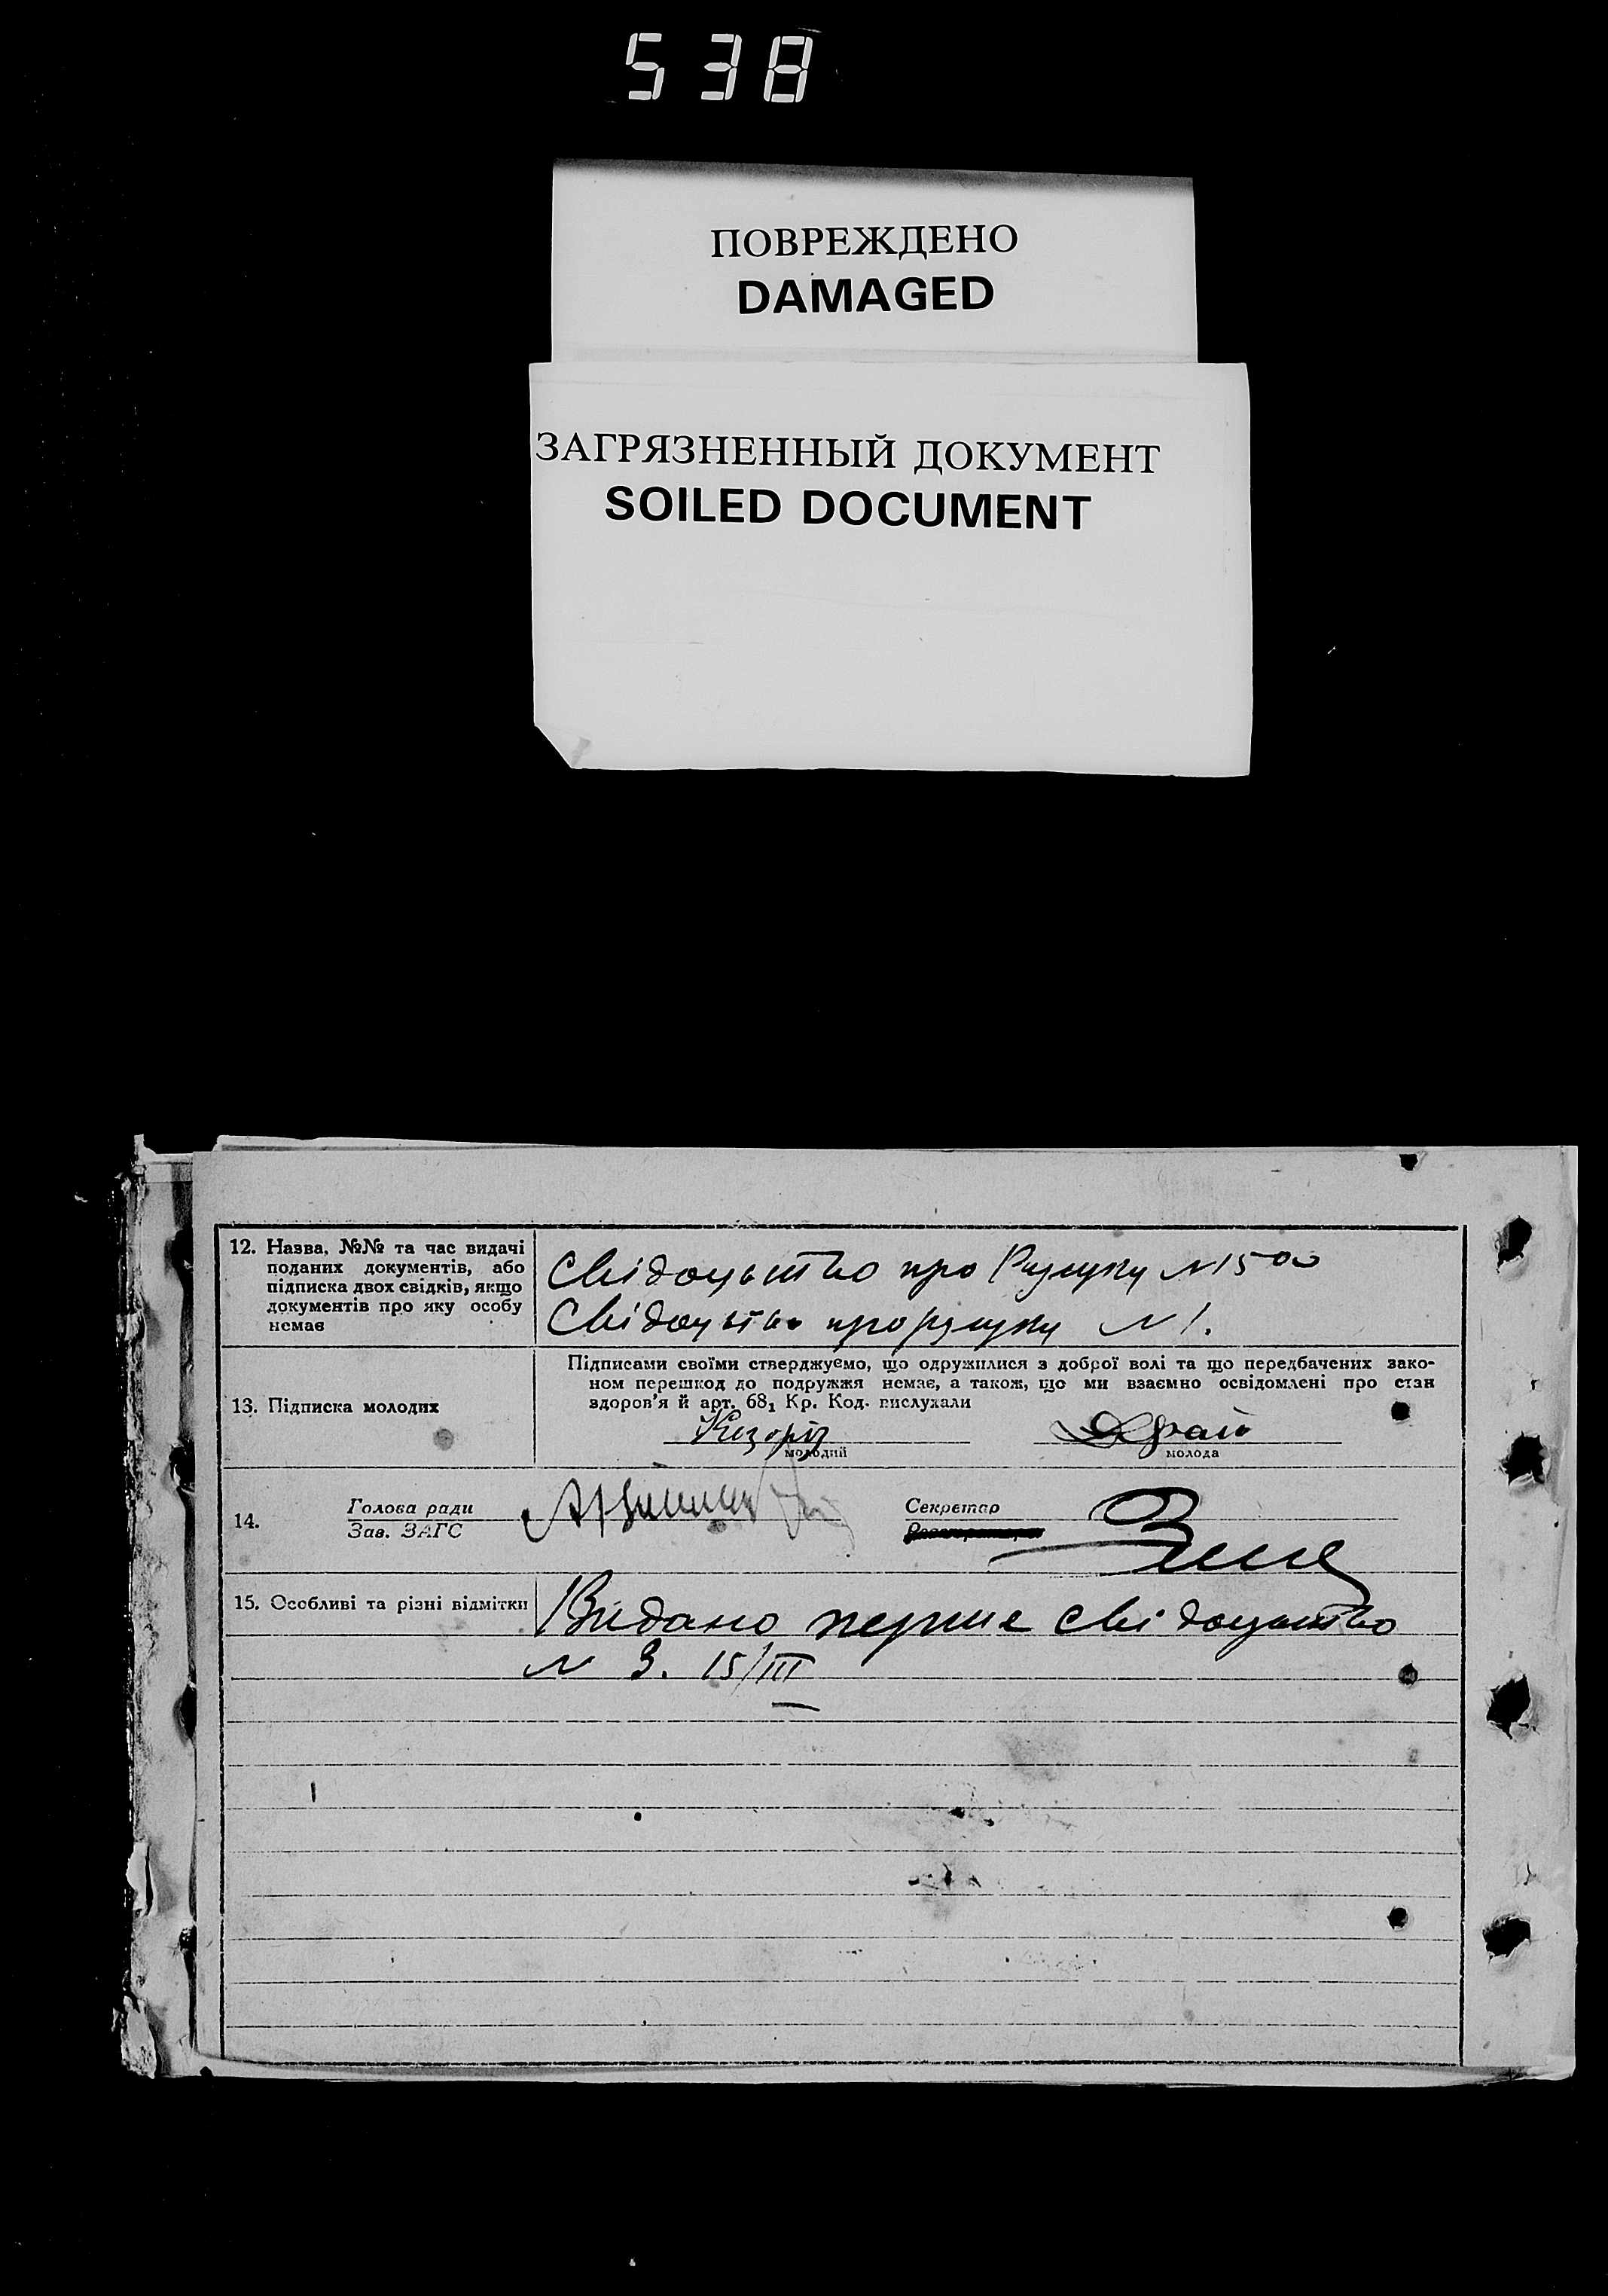 538
ПОВРЕЖДЕНО
DAMAGED
ЗАГРЯЗНЕННЫЙ ДОКУМЕНТ
SOILED DOCUMENT
12. Назва, №№ та час видачі
поданих документів, або
підписка двох свідків, якщо
документів про яку особу
немає
Свідоцьтво про Рузлуку N 1500
Свідоцьтво про рузлуку N 1.
13. Підписка молодих
Підписами своїми стверджуємо, що одружилися з доброї волі та що передбачених зако-
ном перешкод до подружжя немає, а також, що ми взаємно освідомлені про стан
здоров'я й арт. 68₁ Кр. Код. вислухали
молодий
Драй
молода
14.
Голова ради
Зав. ЗАГС
Секретар
15. Особливі та різні відмітки
Видано перше свідоцьтво
N 3. 15/III